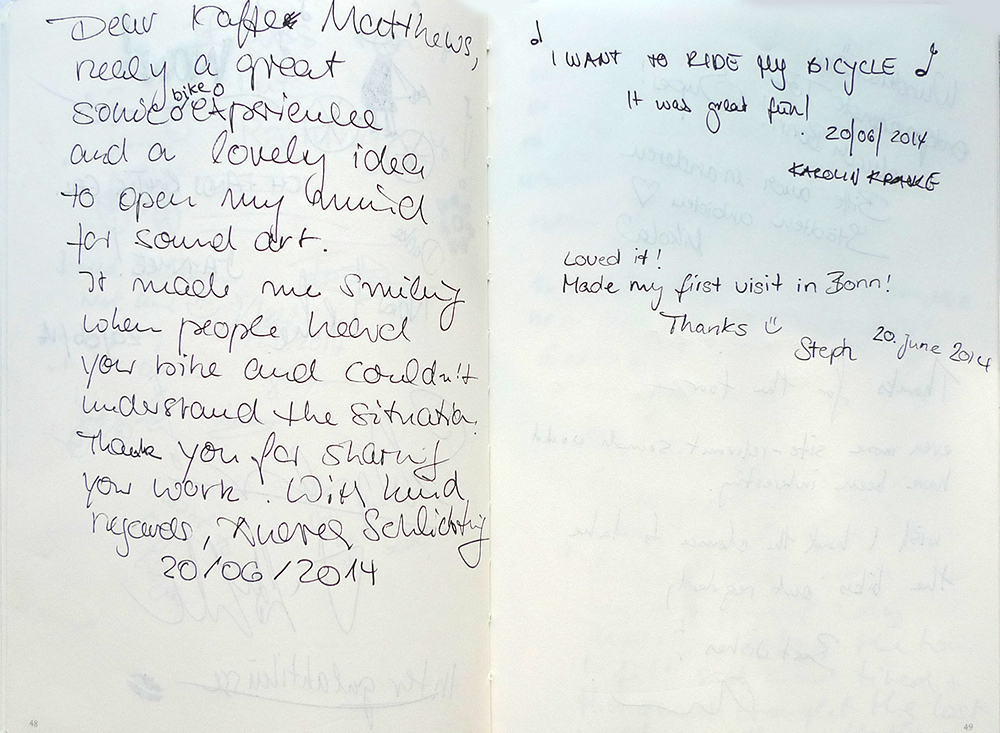 Dear Kaffe Matthews,
really a great
sonic bike experience
and a lovely idea
to open my mind
for sound art.
It made me smiling
when people heard
your bike and couldn't
understand the situation.
Thank you for sharing
your work. With kind
regards, Andrea Schlichting
20/06/2014
48
I WANT TO RIDE My BICYCLE
It was great fun!
20/06/2014
KAROLIN KRANKE
Loved it!
Made my first visit in Bonn!
Thanks
Steph 20. june 2014
49